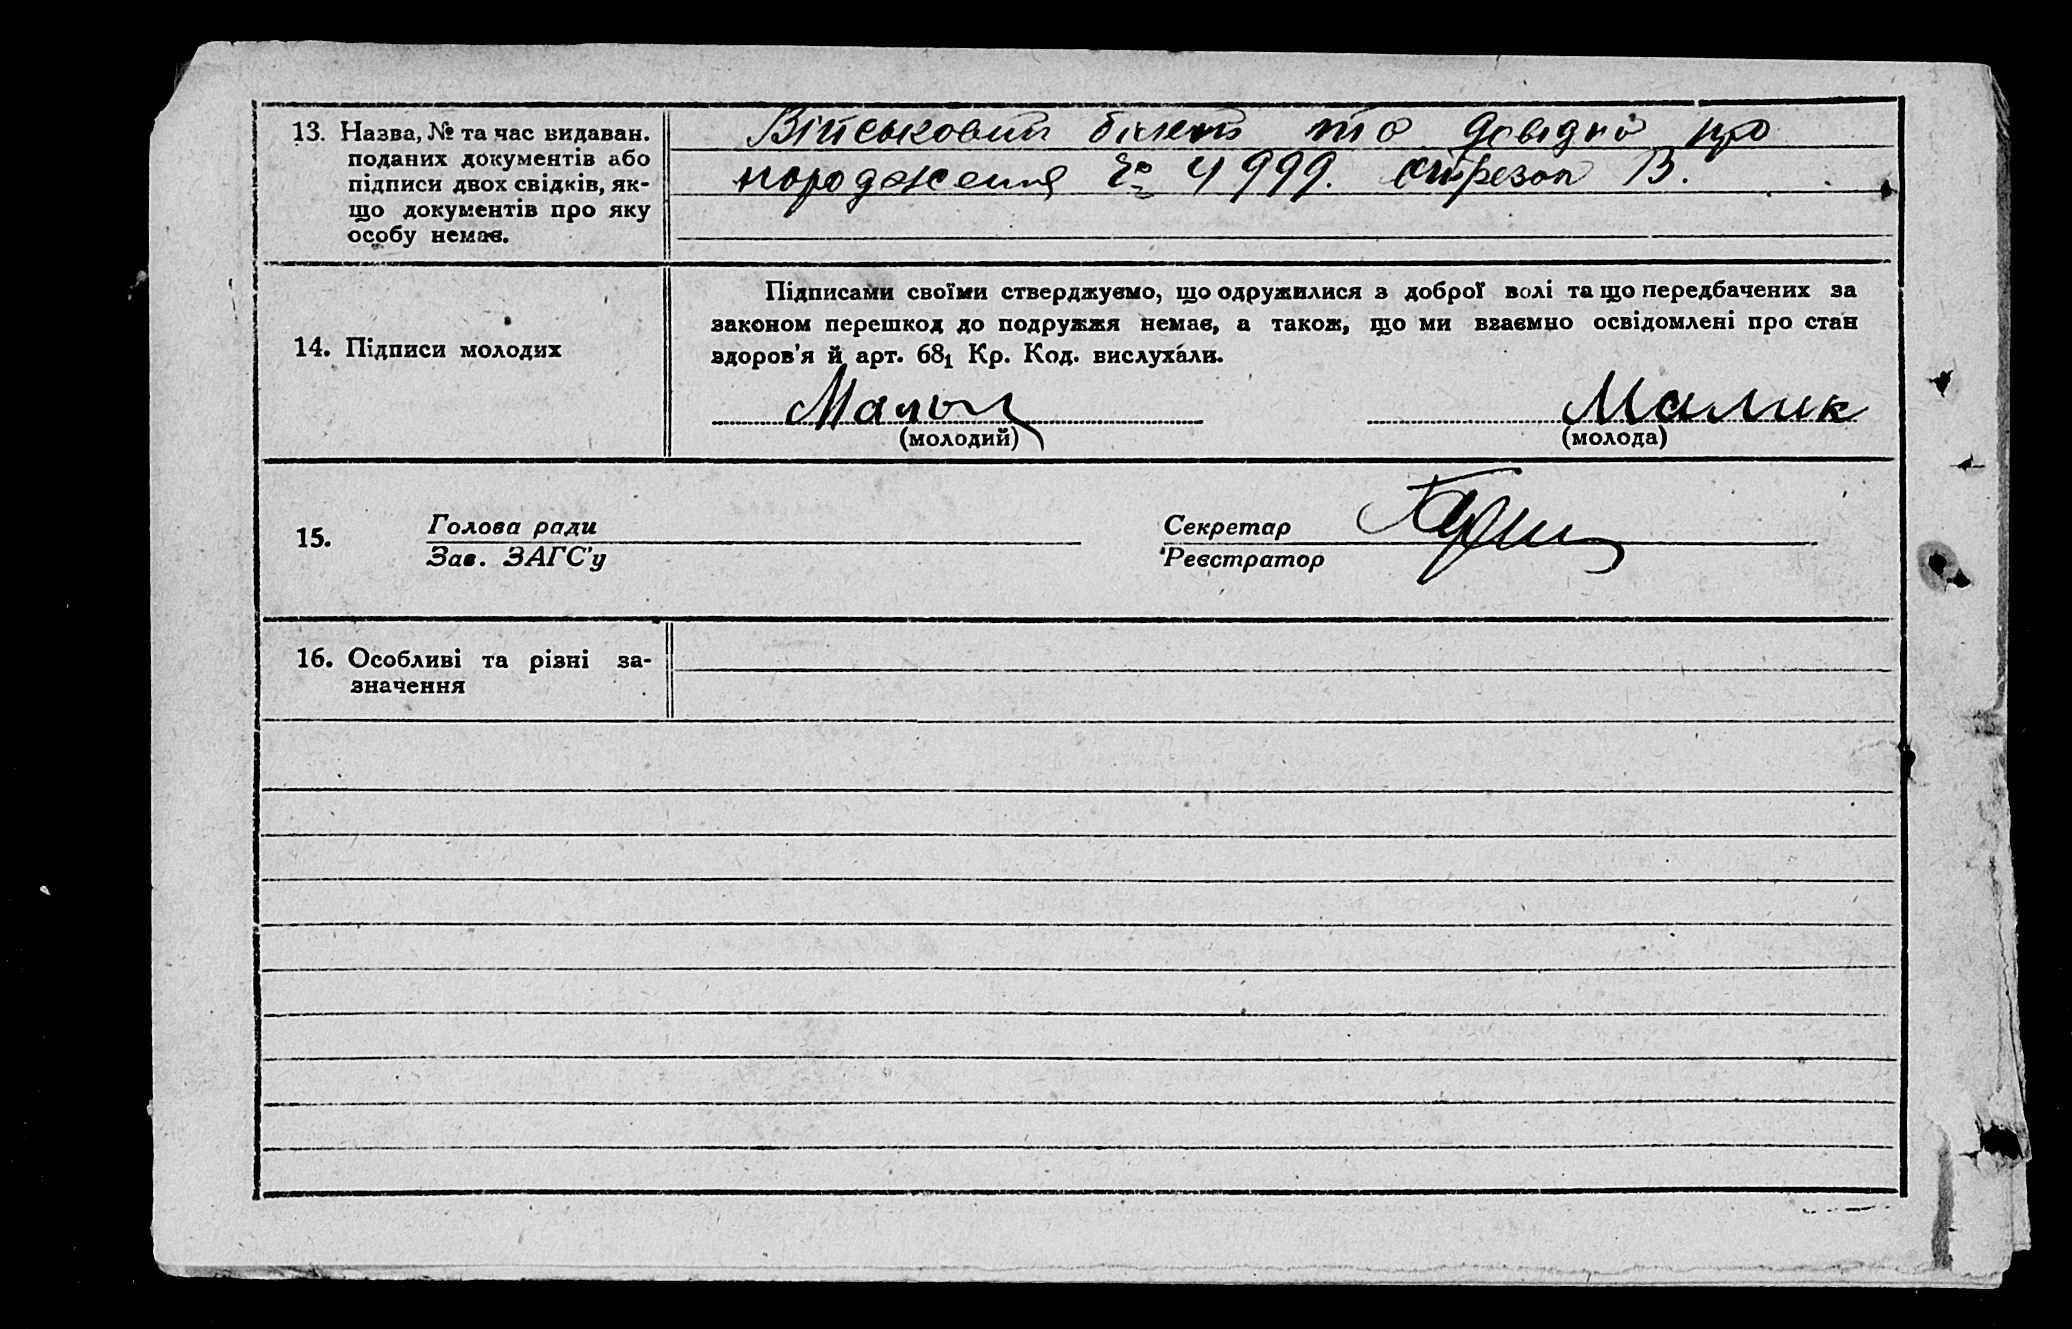 13. Назва, № та час видаван.
поданих документів або
підписи двох свідків, як-
що документів про яку
особу немає.
Військовий білет та довідка про
народження № 4999.
14. Підписи молодих
Підписами своїми стверджуємо, що одружилися з доброї волі та що передбачених за
законом перешкод до подружжя немає, а також, що ми взаємно освідомлені про стан
здоров'я й арт. 68₁ Кр. Код. вислухали.
Малик
(молодий)
(молода)
15.
Голова ради
Зав. ЗАГС'у
Секретар
Реєстратор
16. Особливі та різні за-
значення